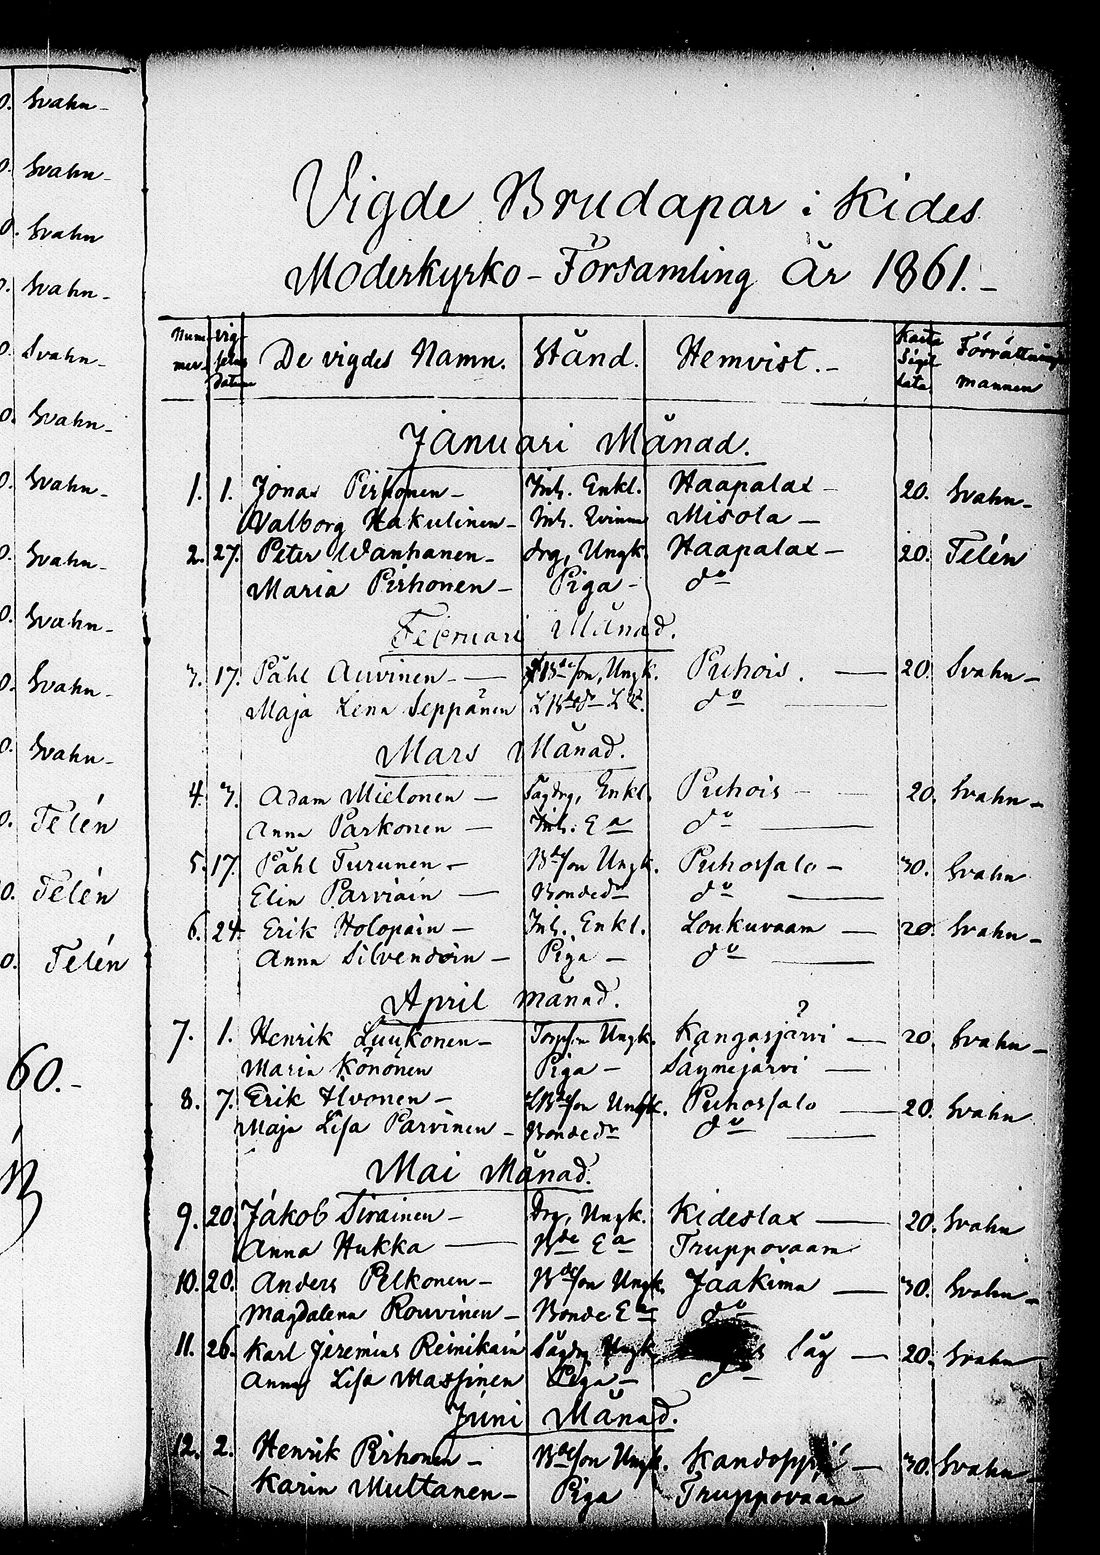 Svahn-
Svahn-
Svahn
Svahn-
Svahn-
Svahn-
Svahn-
Svahn-
Svahn-
Svahn-
Svahn-
Telén
Telén
Telén
60.-
Vigde Brudapar i Kides
Moderkyrko-Församling År 1861.-
Num-mer. Vig- De vigdes Namn. Stånd. Hemvist.- Förrättnings mannen
Januari Månad.
1. 1. Jonas Pirhonen- Inh. Enkl. Haapalax- 20. Svahn-
Valborg Hakulinen- Inh. Misola-
2. 27. Peter Wanhanen- drg, Ungk. Haapalax- 20. Telén
Maria Pirhonen- Piga- do
Februari Månad.
3. 17. Påhl Auvinen- Ungk. Puhois. 20. Svahn-
Maja Lena Seppänen do
Mars Månad.
4. 3. Adam Mielonen- Enkl. Puhois- 20. Svahn-
Anna Parkonen- Inh. Ea do
5. 17. Påhl Turunen- Bdeson Ungk. Puhossalo- 30. Svahn
Elin Parviain- Bondedr do
6. 24. Erik Holopain- Inh. Enkl. Loukuvaam- 20. Svahn-
Anna Silvendoin- Piga- do
April månad.
7. 1. Henrik Luukonen- Ungk. Kangasjärvi? - 20. Svahn-
Maria Könönen Piga- Säynejärvi-
8. 7. Erik Ilvonen- LBdeson Ungk. Puhossalo- 20. Svahn
Maja Lisa Parvinen- Bondedr do
Mai Månad.
9. 20. Jakob Sirainen- Drg, Ungk. Kideslax- 20. Svahn
Anna Hukka- Bde Ea Truppovaam
10. 20. Anders Pelkonen- Bdeson Ungk. Jaakima- 30. Svahn-
Magdalena Rouvinen- Bonde Ea do
11. 26. Karl Jeremias Reinikain Sågdrg Ungk. Såg- 20. Svahn
Anna Lisa Massinen Piga- do
Juni Månad.
12. 2. Henrik Pirhonen- Bdeson Ungk. 30. Svahn-
Karin Multanen- Piga Truppovaam